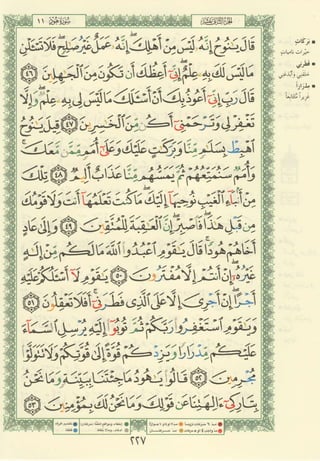 الجزء الثاني عشر
سورة هود ١١
قَالَ يَـٰنُوحُ إِنَّهُۥ لَيْسَ مِنْ أَهْلِكَ ۖ إِنَّهُۥ عَمَلٌ غَيْرُ صَـٰلِحٍ ۖ فَلَا تَسْـَٔلْنِ
مَا لَيْسَ لَكَ بِهِۦ عِلْمٌ ۖ إِنِّىٓ أَعِظُكَ أَن تَكُونَ مِنَ ٱلْجَـٰهِلِينَ ٤٦
قَالَ رَبِّ إِنِّىٓ أَعُوذُ بِكَ أَنْ أَسْـَٔلَكَ مَا لَيْسَ لِى بِهِۦ عِلْمٌ ۖ وَإِلَّا
تَغْفِرْ لِى وَتَرْحَمْنِىٓ أَكُن مِّنَ ٱلْخَـٰسِرِينَ ٤٧ قِيلَ يَـٰنُوحُ
ٱهْبِطْ بِسَلَـٰمٍ مِّنَّا وَبَرَكَـٰتٍ عَلَيْكَ وَعَلَىٰٓ أُمَمٍ مِّمَّن مَّعَكَ ۚ
وَأُمَمٌ سَنُمَتِّعُهُمْ ثُمَّ يَمَسُّهُم مِّنَّا عَذَابٌ أَلِيمٌ ٤٨ تِلْكَ
مِنْ أَنۢبَآءِ ٱلْغَيْبِ نُوحِيهَآ إِلَيْكَ ۖ مَا كُنتَ تَعْلَمُهَآ أَنتَ وَلَا قَوْمُكَ
مِن قَبْلِ هَـٰذَا ۖ فَٱصْبِرْ ۖ إِنَّ ٱلْعَـٰقِبَةَ لِلْمُتَّقِينَ ٤٩ وَإِلَىٰ عَادٍ
أَخَاهُمْ هُودًا ۚ قَالَ يَـٰقَوْمِ ٱعْبُدُوا۟ ٱللَّهَ مَا لَكُم مِّنْ إِلَـٰهٍ
غَيْرُهُۥٓ ۖ إِنْ أَنتُمْ إِلَّا مُفْتَرُونَ ٥٠ يَـٰقَوْمِ لَآ أَسْـَٔلُكُمْ عَلَيْهِ
أَجْرًا ۖ إِنْ أَجْرِىَ إِلَّا عَلَى ٱلَّذِى فَطَرَنِىٓ ۚ أَفَلَا تَعْقِلُونَ ٥١
وَيَـٰقَوْمِ ٱسْتَغْفِرُوا۟ رَبَّكُمْ ثُمَّ تُوبُوٓا۟ إِلَيْهِ يُرْسِلِ ٱلسَّمَآءَ
عَلَيْكُم مِّدْرَارًا وَيَزِدْكُمْ قُوَّةً إِلَىٰ قُوَّتِكُمْ وَلَا تَتَوَلَّوْا۟
مُجْرِمِينَ ٥٢ قَالُوا۟ يَـٰهُودُ مَا جِئْتَنَا بِبَيِّنَةٍ وَمَا نَحْنُ
بِتَارِكِىٓ ءَالِهَتِنَا عَن قَوْلِكَ وَمَا نَحْنُ لَكَ بِمُؤْمِنِينَ ٥٣
٢٢٧